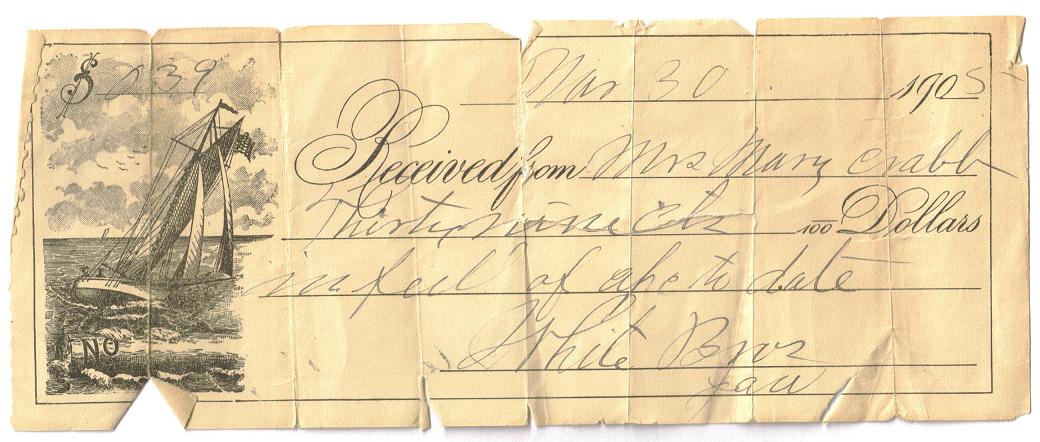 $ .39
Mar 30 1905
Received from Mrs Mary Crabb
Thirty nine cts 100 Dollars
in full of a/c to date
White Bros
NO